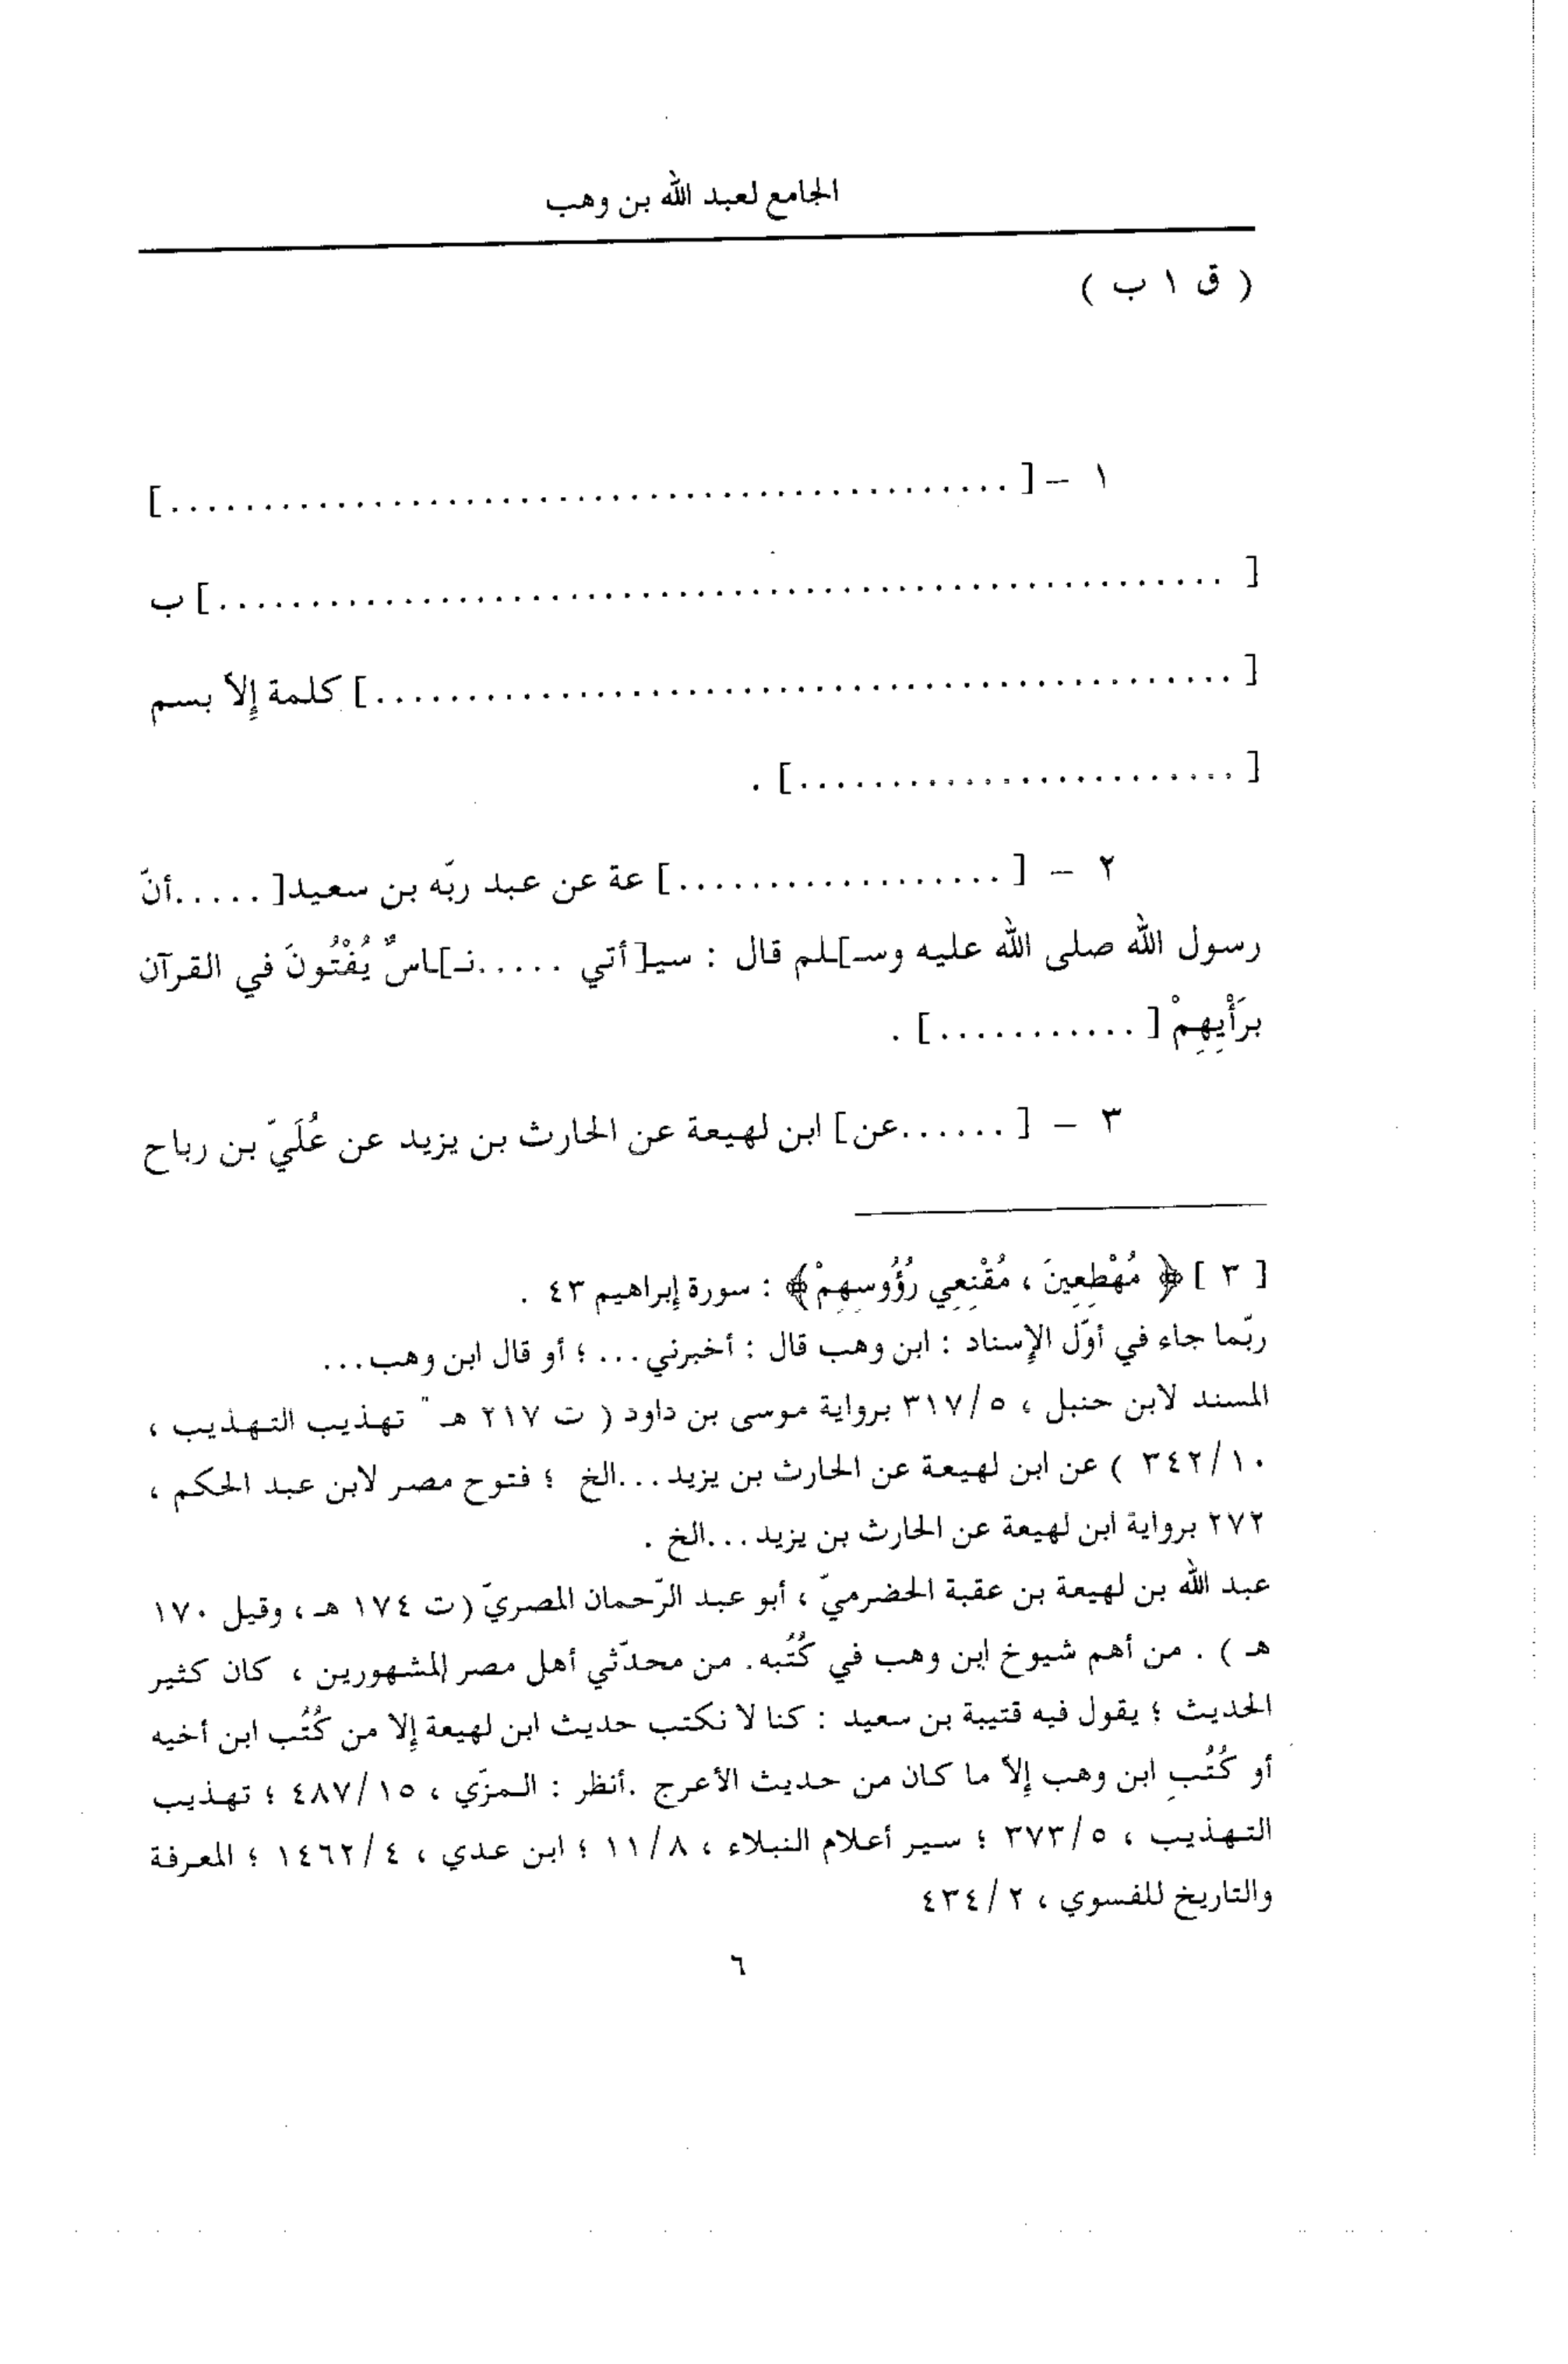 الجامع لعبد الله بن وهب
( ق ١ ب )
١ – [ ................................................]
[ ........................................................] ب
[ ................................................] كلمة إلاّ بسم
[ ........................] .
٢ – [ ..................] عة عن عبد ربّه بن سعيد[ .....أنّ
رسول الله صلى الله عليه وسـ]ـلم قال : سيـ[ـأتي .....نـ]ـاسٌ يُفْتُونَ في القرآن
برَأْيِهِمْ [ ...........] .
٣ – [ ......عن] ابن لهيعة عن الحارث بن يزيد عن عُلَيّ بن رباح
[ ٣ ] ﴿ مُهْطِعِينَ ، مُقْنِعِي رُؤُوسِهِمْ﴾ : سورة إبراهيم ٤٣ .
ربّما جاء في أوّل الإسناد : ابن وهب قال : أخبرني... ؛ أو قال ابن وهب...
المسند لابن حنبل ، ٣١٧/٥ برواية موسى بن داود ( ت ٢١٧ هـ " تهذيب التهذيب ،
٣٤٢/١٠ ) عن ابن لهيعة عن الحارث بن يزيد...الخ ؛ فتوح مصر لابن عبد الحكم ،
٢٧٢ برواية ابن لهيعة عن الحارث بن يزيد...الخ .
عبد الله بن لهيعة بن عقبة الحضرميّ ، أبو عبد الرّحمان المصريّ (ت ١٧٤ هـ ، وقيل ١٧٠
هـ ) . من أهم شيوخ ابن وهب في كُتُبه. من محدّثي أهل مصر المشهورين ، كان كثير
الحديث ؛ يقول فيه قتيبة بن سعيد : كنا لا نكتب حديث ابن لهيعة إلا من كُتُب ابن أخيه
أو كُتُبِ ابن وهب إلاّ ما كان من حديث الأعرج .أنظر : المزّي ، ٤٨٧/١٥ ؛ تهذيب
التهذيب ، ٣٧٣/٥ ؛ سير أعلام النبلاء ، ١١/٨ ؛ ابن عدي ، ١٤٦٢/٤ ؛ المعرفة
والتاريخ للفسوي ، ٤٣٤/٢
٦